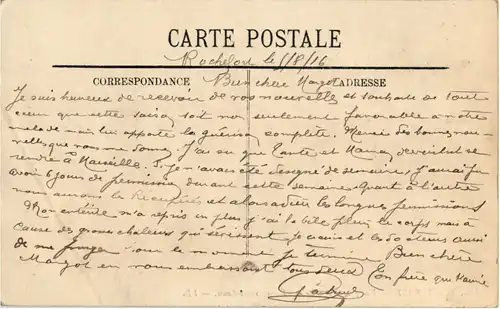 CARTE POSTALE
Rochefort le 5/8/16
CORRESPONDANCE
ADRESSE
Bien chère Margot
Je suis heureux de recevoir de vos nouvelle et souhaite de tout
cœur que cette saison soit non seulement favorable a notre
malade mais lui apporte la guérison complete. Merci des bonnes nou-
velles que vous me donne. J'ai su que Tante et devait se
rendre à Marseille. Si je n'avais été designé de semaine j'aurai pu
avoir 6 jours de permission durant cette semaine. Quant à l'autre
nous aurons le et alors adieu les longues permissions
Mon entérite m'a repris en plus j'ai la bile plein le corps mais à
cause des grosses chaleurs qui sévissent je crois et les docteurs aussi
de me purger pour le moment je termine Bien chère
Margot en vous embrassant tous deux. Ton frère qui t'aime
Gabriel